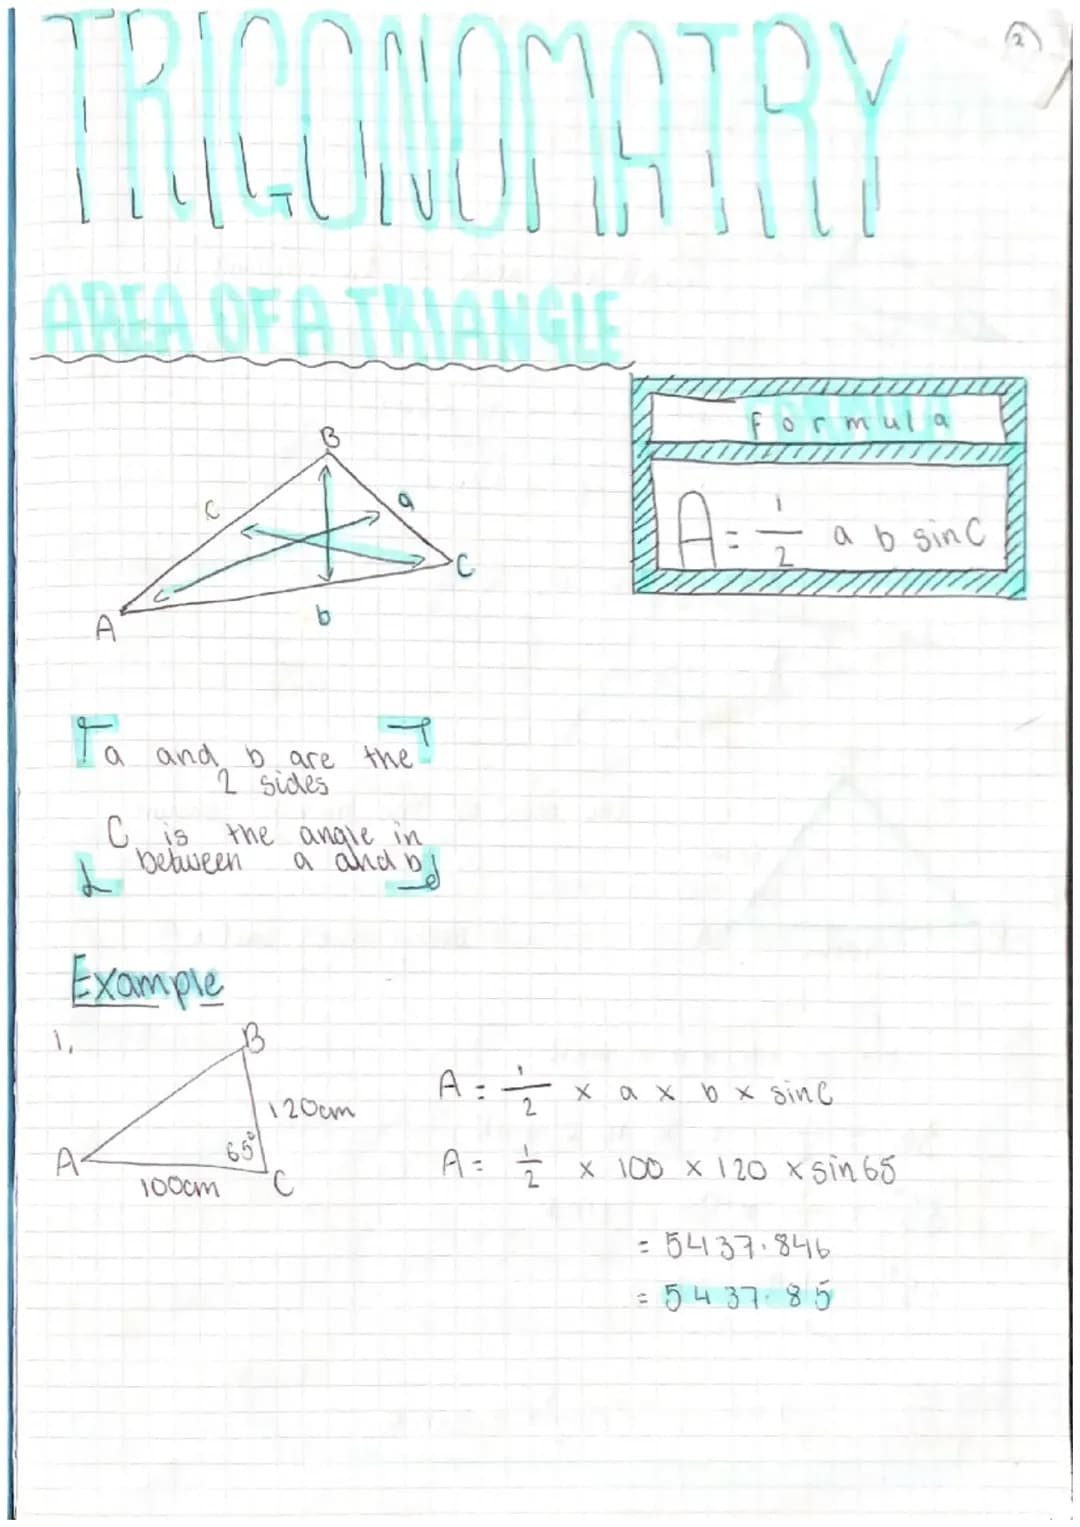 2
TRIGONOMATRY
AREA OF A TRIANGLE
Formula
A = 1/2 a b sinC
B
c
a
C
b
A
a and b are the
2 sides
C is the angle in
between a and b
Example
1.
B
120cm
65°
A
100cm
C
A = 1/2 × a × b × sinC
A = 1/2 × 100 × 120 × sin 65
= 5437.846
= 5437.85